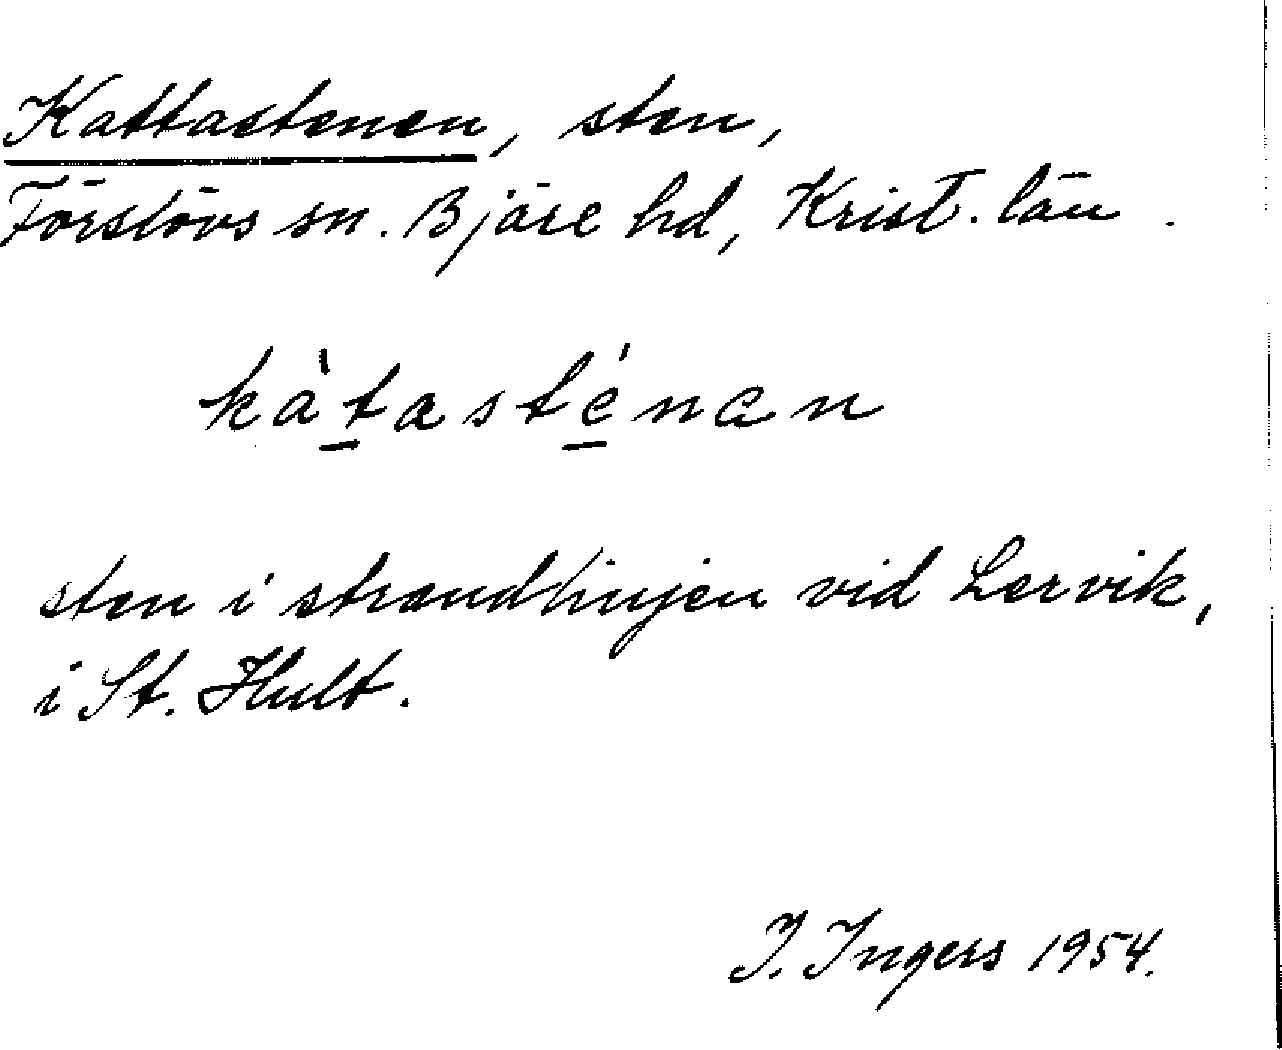 Kattastenen, sten,
Förslövs sn. Bjäre hd, Krist. län.
kàt̲asté̲nan
sten i strandlinjen vid Lervik,
i St. Hult.
I. Ingers 1954.